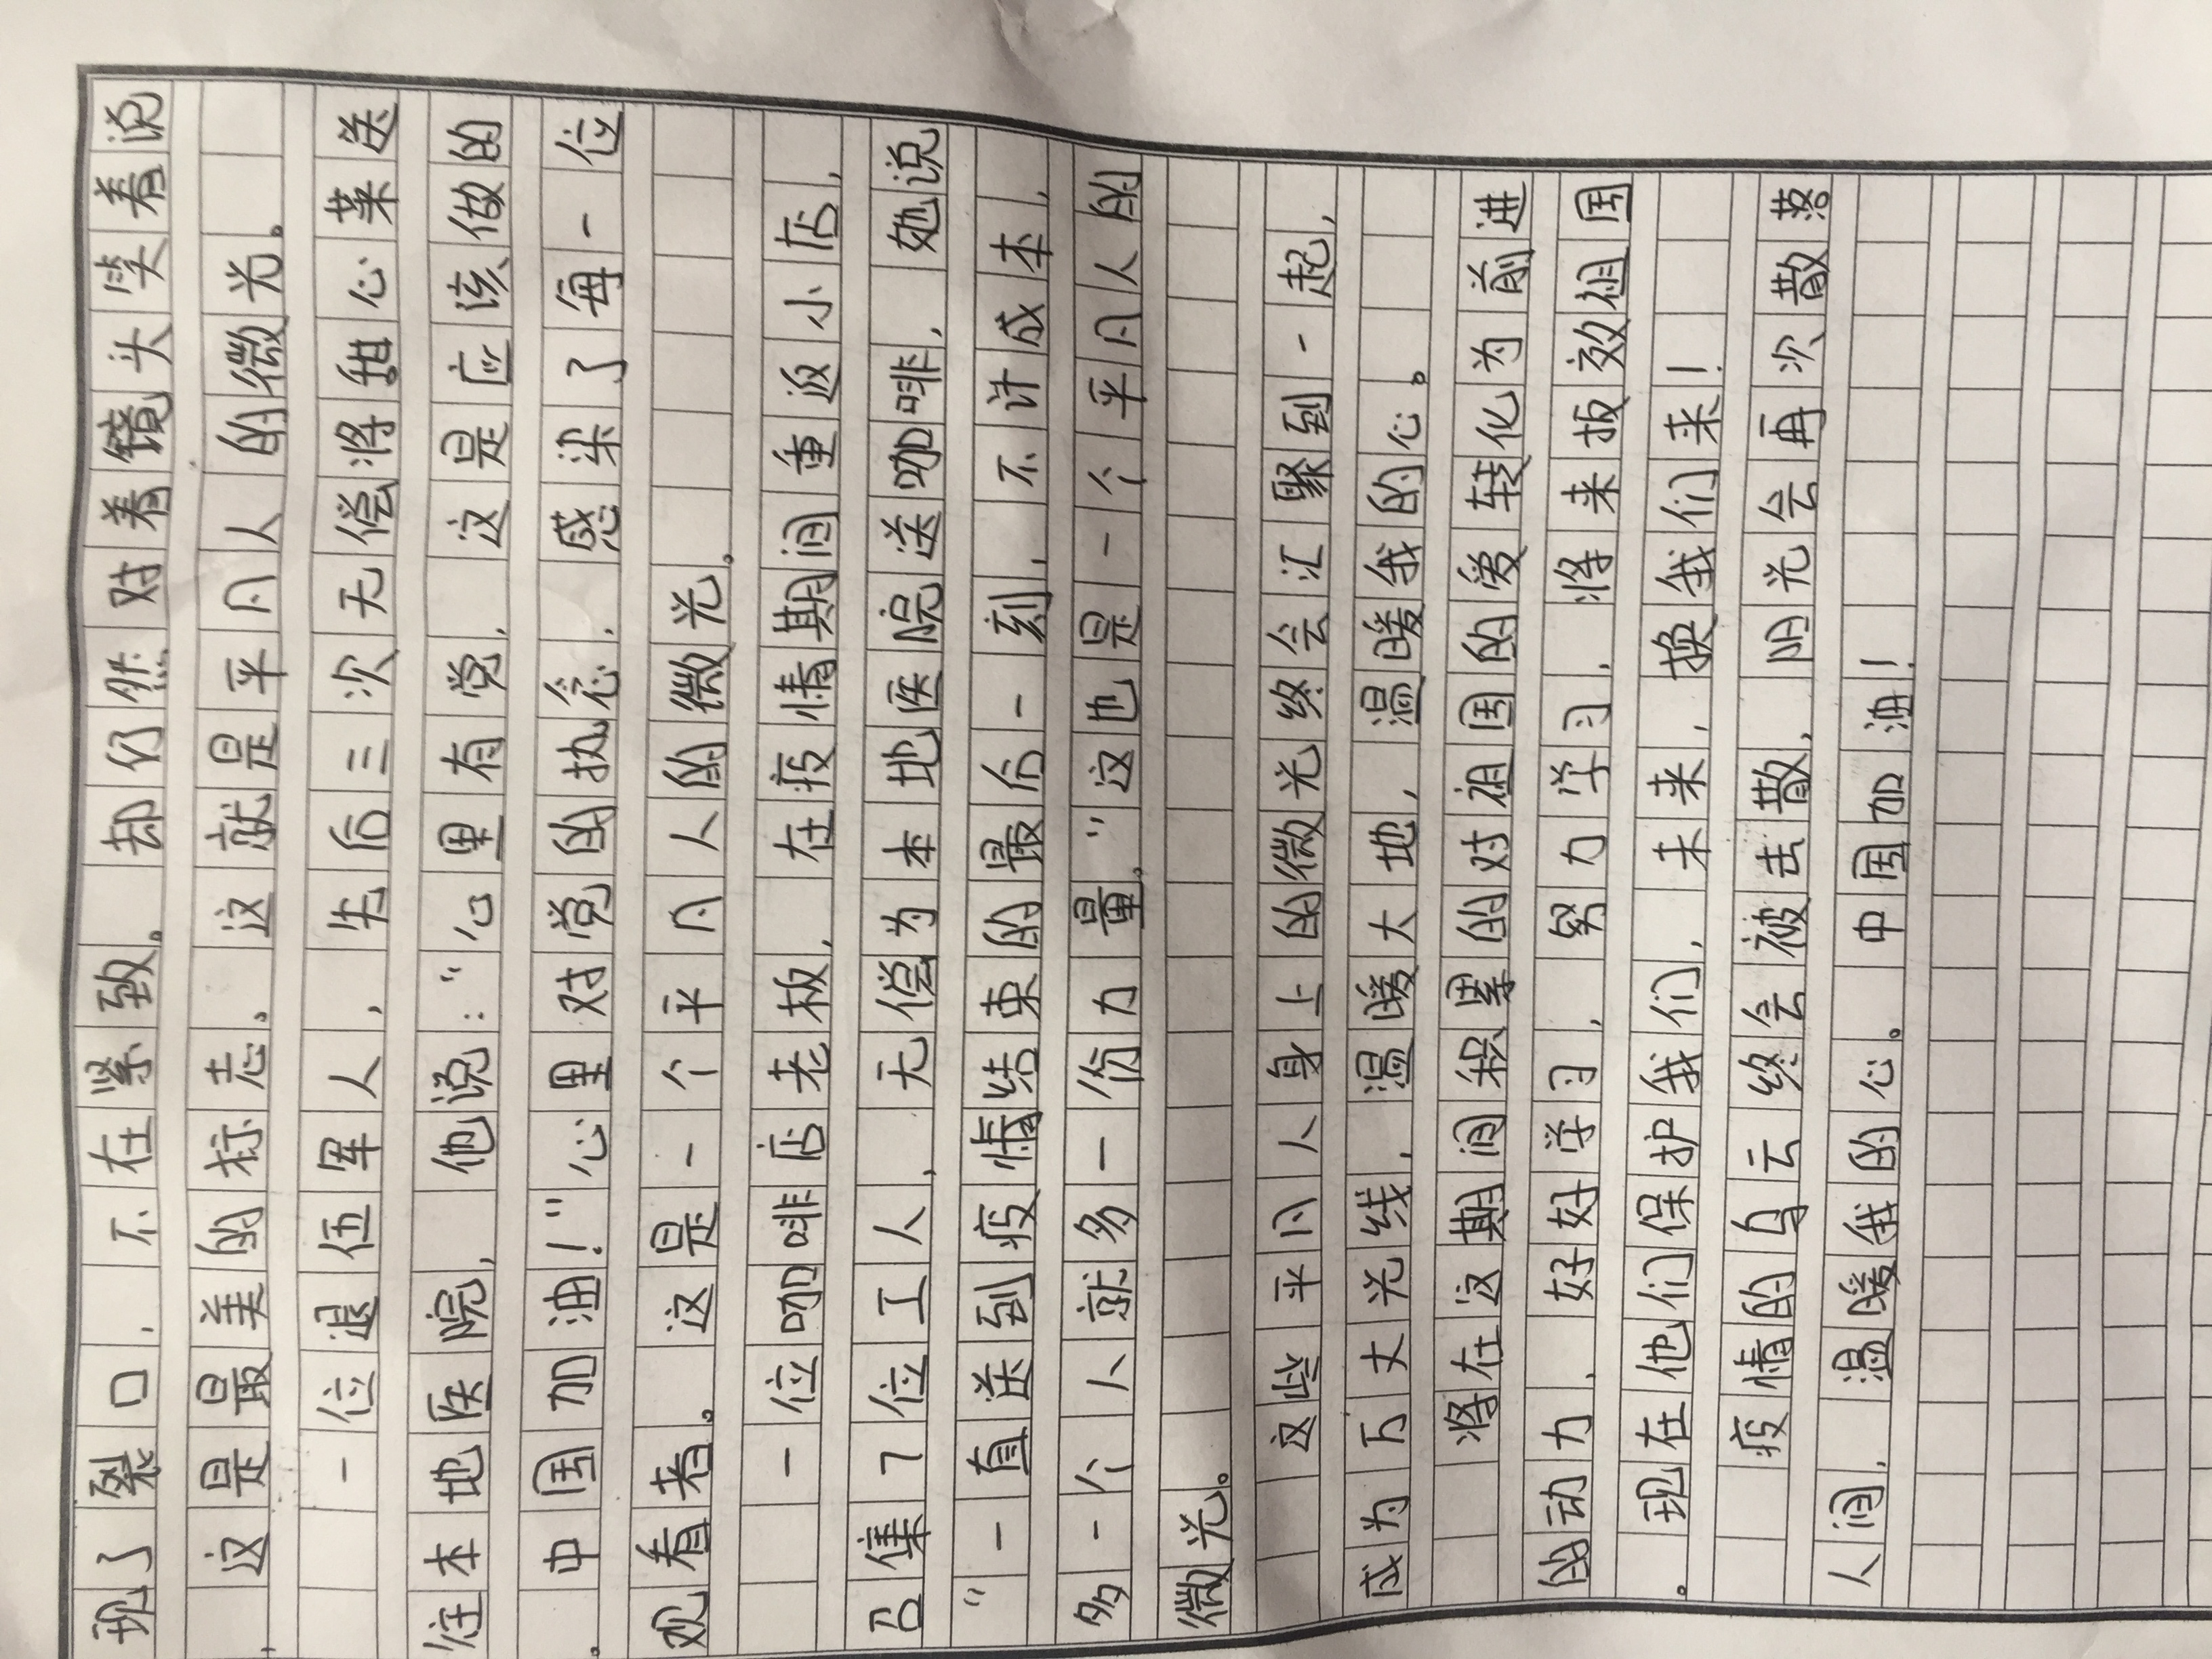 现了裂口,不在紧致。却仍然对着镜头笑着说
,这是最美的标志。这就是平凡人的微光。
一位退伍军人,先后三次无偿将甜心菜送
往本地医院,他说:“心里有党,这是应该做的
。中国加油!”心里对党的执念,感染了每一位
观看者。这是一个平凡人的微光。
一位咖啡店老板,在疫情期间重返小店,
召集7位工人,无偿为本地医院送咖啡,她说
“一直送到疫情结束的最后一刻,不计成本,
多一个人就多一份力量。”这也是一个平凡人的
微光。
这些平凡人身上的微光终会汇聚到一起,
成为万丈光线,温暖大地,温暖我的心。
将在这期间积累的对祖国的爱转化为前进
的动力,好好学习,努力学习,将来报效祖国
。现在他们保护我们,未来,换我们来!
疫情的乌云终会被击散,阴光会再次散落
人间,温暖我的心。中国加油!